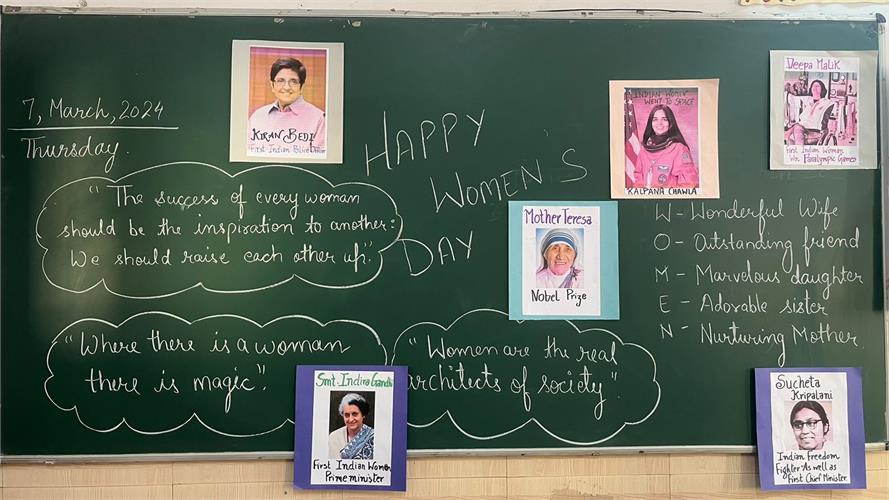 7, March, 2024
Thursday.
KIRAN BEDI
First Indian Police Officer
HAPPY
WOMEN'S
DAY
INDIAN WOMEN
WENT TO SPACE
KALPANA CHAWLA
Deepa Malik
First Indian Women
Win Paralympic Games
"The success of every woman
should be the inspiration to another:
We should raise each other up."
Mother Teresa
Nobel Prize
W - Wonderful Wife
O - Outstanding friend
M - Marvelous daughter
E - Adorable sister
N - Nurturing Mother.
"Where there is a woman
there is magic".
"Women are the real
architects of society".
Smt. Indira Gandhi
First Indian Women
Prime minister
Sucheta
Kripalani
Indian Freedom
Fighter As well as
First Chief Minister